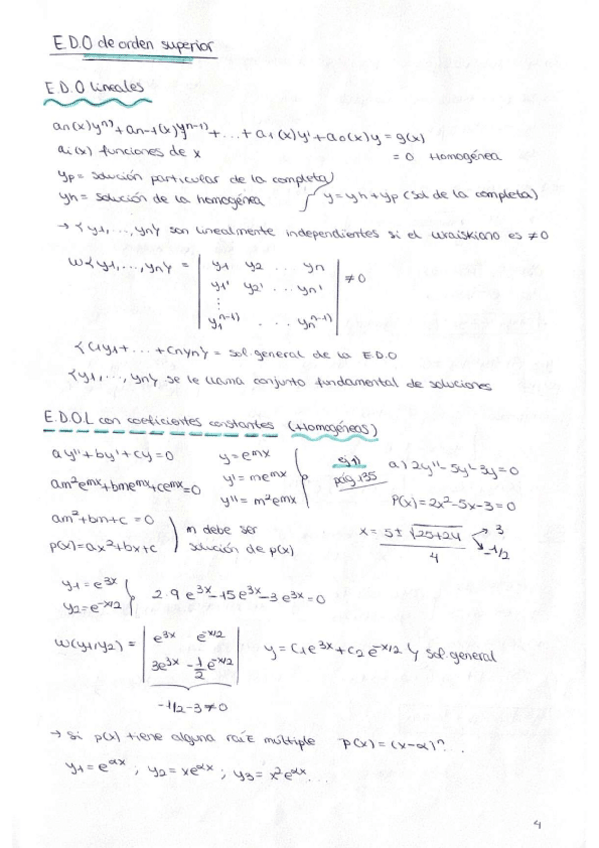 E.D.O de orden superior
E.D.O lineales
an(x)yⁿ⁾+an-1(x)yⁿ⁻¹⁾+...+a1(x)y'+a0(x)y=g(x)
ai(x) funciones de x = 0 Homogénea
yp = solución particular de la completa
yh = solución de la homogénea y=yh+yp (sol de la completa)
→ {y1,...,yn} son linealmente independientes si el wraiskiano es ≠0
W{y1,...,yn} = | y1 y2 .. yn |
| y1' y2' ... yn' | ≠0
⋮
| y1ⁿ⁻¹⁾ . . . ynⁿ⁻¹⁾ |
{C1y1+...+Cnyn} = sol.general de la E.D.O
{y1,...,yn} se le llama conjunto fundamental de soluciones
E.D.O.L con coeficientes constantes (Homogéneas)
ay''+by'+cy=0 y=eᵐˣ ej 1) a) 2y''-5y'-3y=0
am²eᵐˣ+bmeᵐˣ+ceᵐˣ=0 y'=meᵐˣ pág.135
y''=m²eᵐˣ P(x)=2x²-5x-3=0
am²+bm+c=0 m debe ser
p(x)=ax²+bx+c solución de p(x)
x = 5±√25+24 / 4 → 3 → -1/2
y1=e³ˣ
y2=e^-x/2 2·9e³ˣ-15e³ˣ-3e³ˣ=0
W(y1,y2) = | e³ˣ e^-x/2 | y=C1e³ˣ+C2e^-x/2 } sol.general
| 3e³ˣ -1/2 e^-x/2 |
-1/2-3≠0
→ si p(x) tiene alguna raíz múltiple p(x)=(x-α)ⁿ...
y1=e^αx ; y2=xe^αx ; y3=x²e^αx...
4